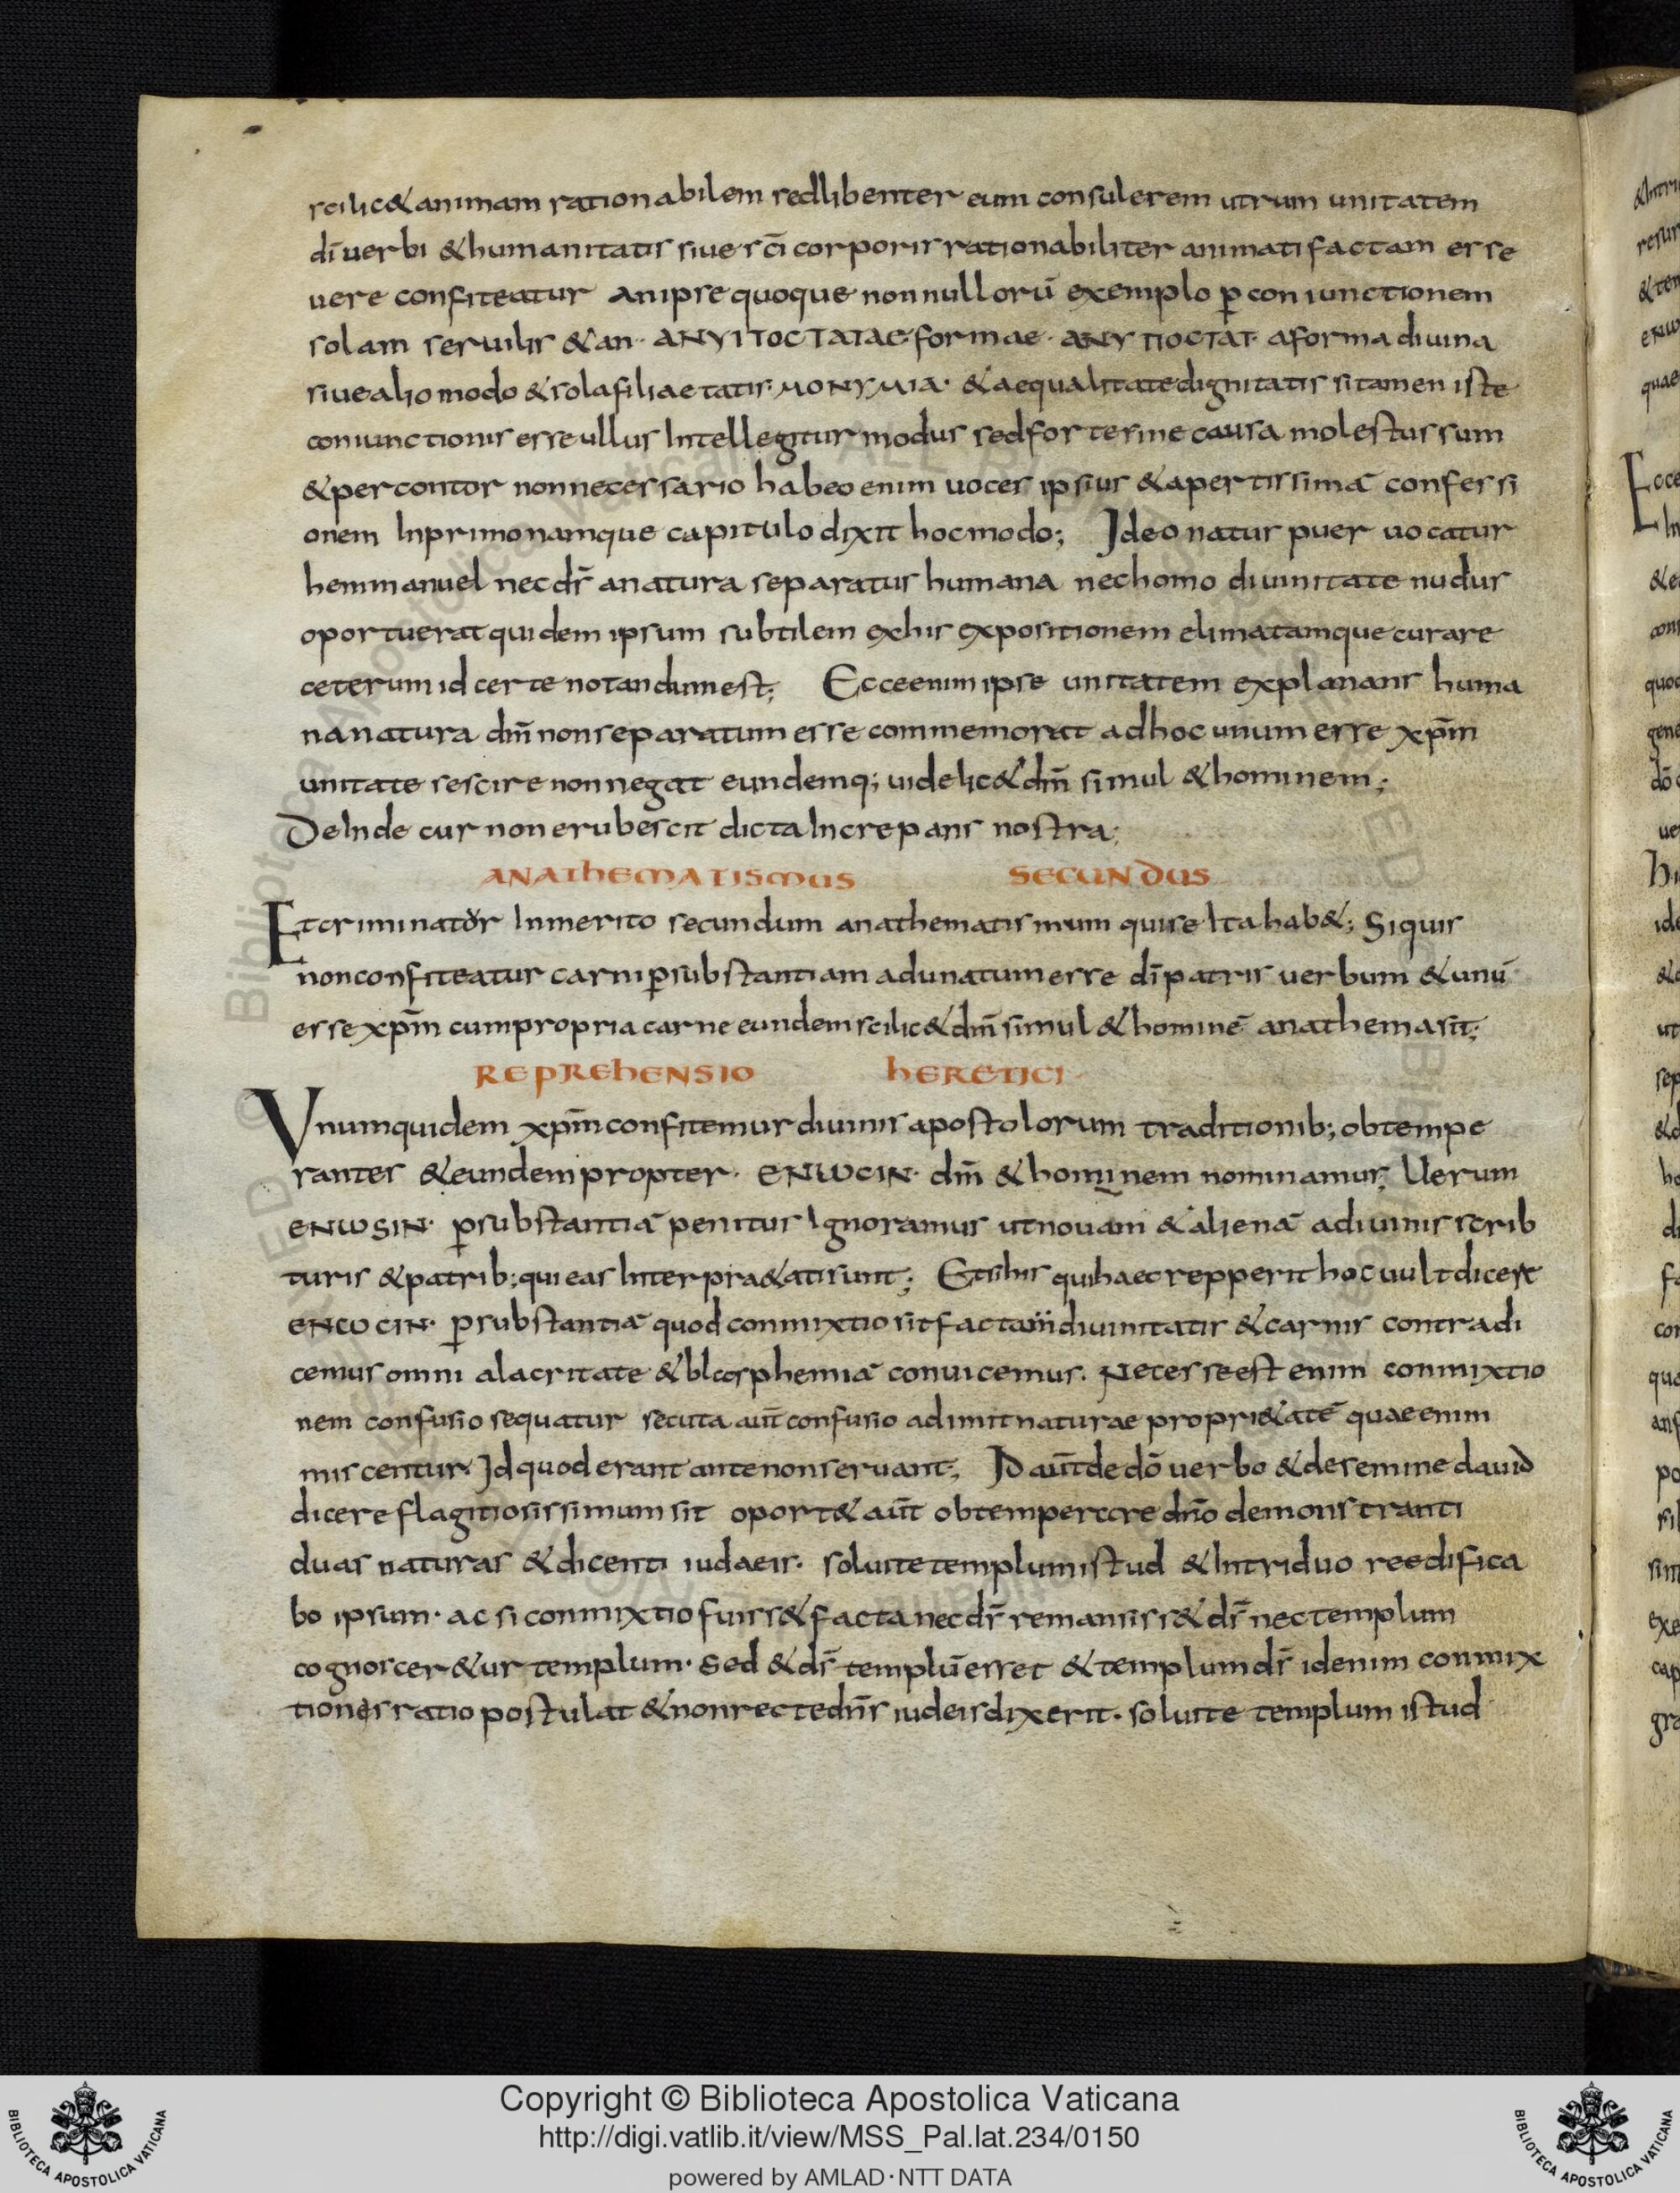 scilic& animam rationabilem sed libenter eum consulerem utrum unitatem
dī uerbi & humanitatis siue scī corporis rationabiliter animati factam esse
uere confiteatur an ipse quoque nonnullorū exemplo p̄ coniunctionem
solam seruilis & an· ANYITOCTATAC· formae· ANYTIOCTAT· a forma diuina
siue alio modo & sola filiaetatis· MONYMIA· & aequalitate dignitatis si tamen iste
coniunctionis esse ullus Intellegitur modus sed forte sine causa molestus sum
& percontor non necessario habeo enim uoces ipsius & apertissimā confessi
onem In primo namque capitulo dixit hoc modo; Ideo natus puer uocatur
hemmanuel nec d̄s a natura separatus humana nec homo diuinitate nudus
oportuerat quidem ipsum subtilem ex his expositionem elimatamque curare
ceterum id certe notandum est; Ecce enim ipse unitatem explanans huma
na natura dm̄ non separatum esse commemorat adhoc unum esse xp̄m
unitate se scire non negat eundemq; uidelic& dm̄ simul & hominem;
DeInde cur non erubescit dicta Increpans nostra;
ANAThEMATISMUS SECUNDUS
Et criminator Inmerito secundum anathematismum qui se Ita hab&; Si quis
non confiteatur carni p̄ substantiam adunatum esse dī patris uerbum & unū
esse xp̄m cum propria carne eundem scilic& dm̄ simul & hominē anathema sit;
REPREhENSIO hERETICI
Unum quidem xp̄m confitemur diuinis apostolorum traditionib; obtempe
rantes & eundem propter· ENWCIN· dm̄ & hominem nominamus; Uerum
ENWSIN· p̄ substantiā penitus Ignoramus ut nouam & alienā a diuinis scrib
turis & patrib; qui eas Interpra&ati sunt; Et si his qui haec repperit hoc uult dicere
ENWCIN· p̄ substantiā quod conmixtio sit facta diuinitatis & carnis contradi
cemus omni alacritate & blasphemiā conuicemus. Necesse est enim conmixtio
nem confusio sequatur secuta aūt confusio adimit naturae propri&atē quae enim
miscentur Id quod erant ante non seruant; Id aūt de dō uerbo & de semine dauid
dicere flagitiosissimum sit oport& aūt obtemperare dn̄o demonstranti
duas naturas & dicenti iudaeis· soluite templum istud & Intriduo reedifica
bo ipsum· ac si conmixtio fuiss& facta nec d̄s remansiss& d̄s nec templum
cognoscer&ur templum· sed & d̄s templū esset & templum d̄s id enim conmix
tiones ratio postulat & non recte dn̄s iudeis dixerit· soluite templum istud
Copyright © Biblioteca Apostolica Vaticana
http://digi.vatlib.it/view/MSS_Pal.lat.234/0150
powered by AMLAD·NTT DATA
BIBLIOTECA APOSTOLICA VATICANA
BIBLIOTECA APOSTOLICA VATICANA